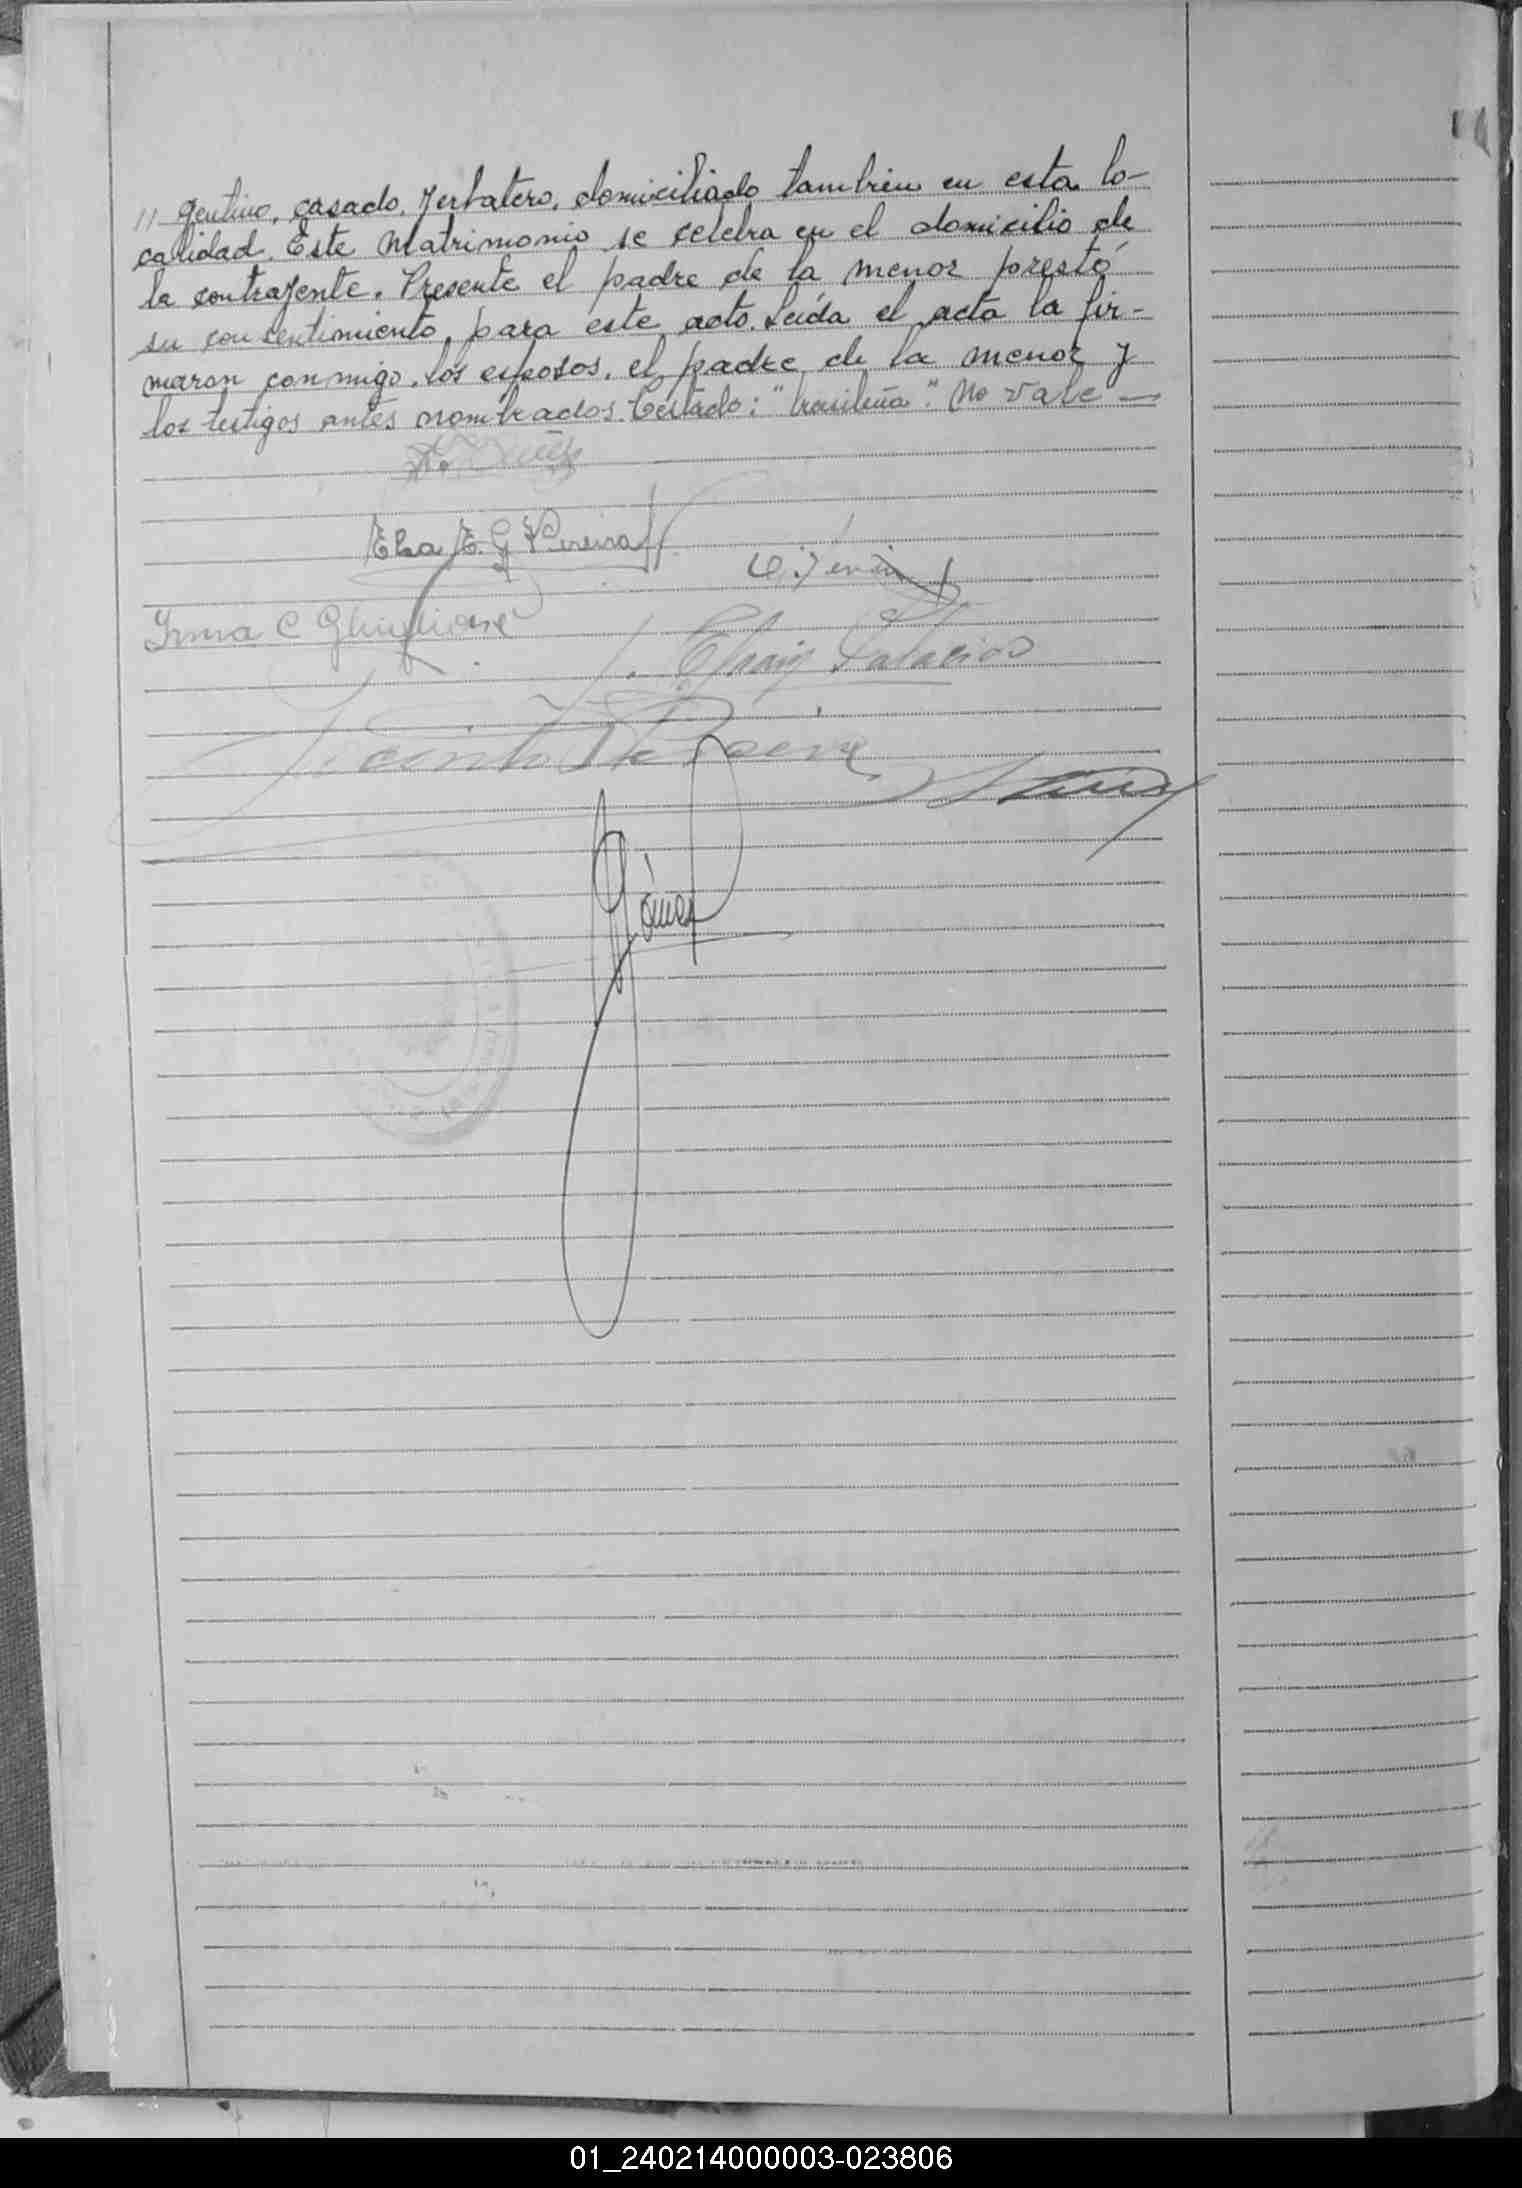 // gentino, casado, yerbatero, domiciliado tambien en esta lo-
calidad. Este matrimonio se celebra en el domicilio de
la contrayente. Presente el padre de la menor prestó
su consentimiento para este acto. Leída el acta la fir-
maron conmigo, los esposos, el padre de la menor y
los testigos antes nombrados. Testado: "brasileña". No vale —
Elsa E. G. Pereira
Irma C Ghiglione
Efrain Palacios
Gómez
01_240214000003-023806